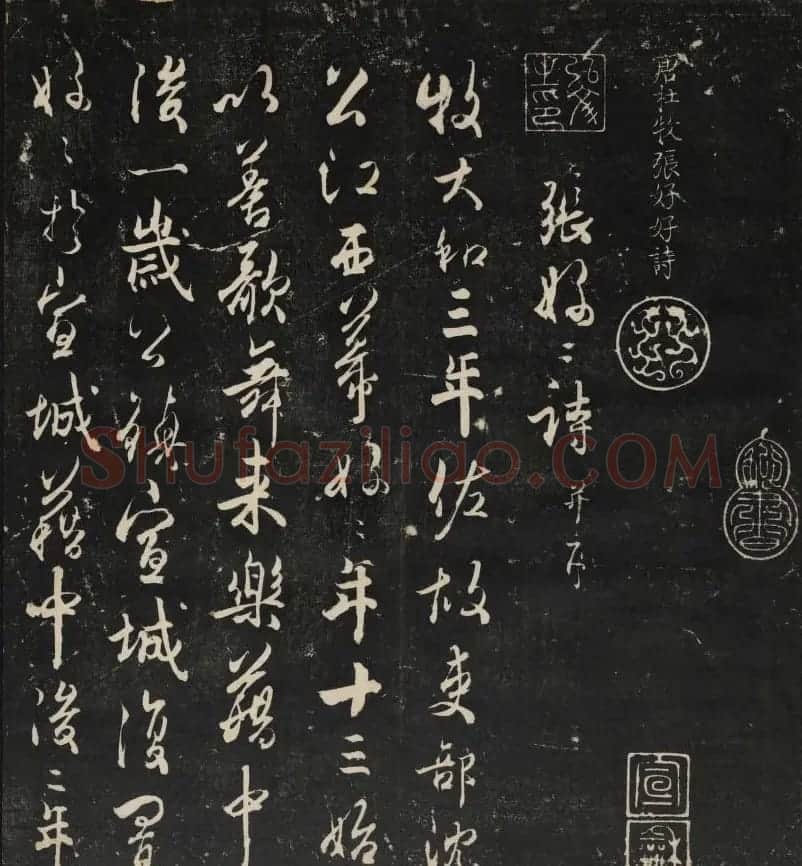 唐杜牧張好好詩
張好〻詩并序
牧大和三年佐故吏部沈
公江西幕好〻年十三始
以善歌舞来樂籍中
後一歲公鎮宣城復置
好〻於宣城籍中後二年
宣
Shufaziliao.COM